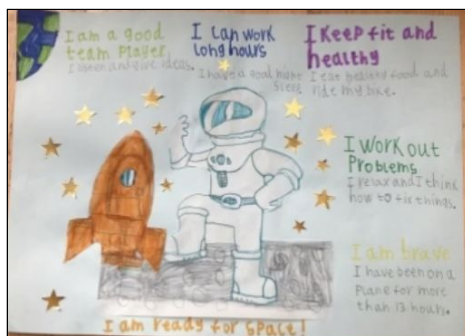 I am a good
team player
I listen and give ideas.
I can work
long hours
I have a good night
sleep
I keep fit and
healthy
I eat healthy food and
ride my bike.
I work out
Problems
I relax and I think
how to fix things.
I am brave
I have been on a
plane for more
than 13 hours.
I am ready for space!